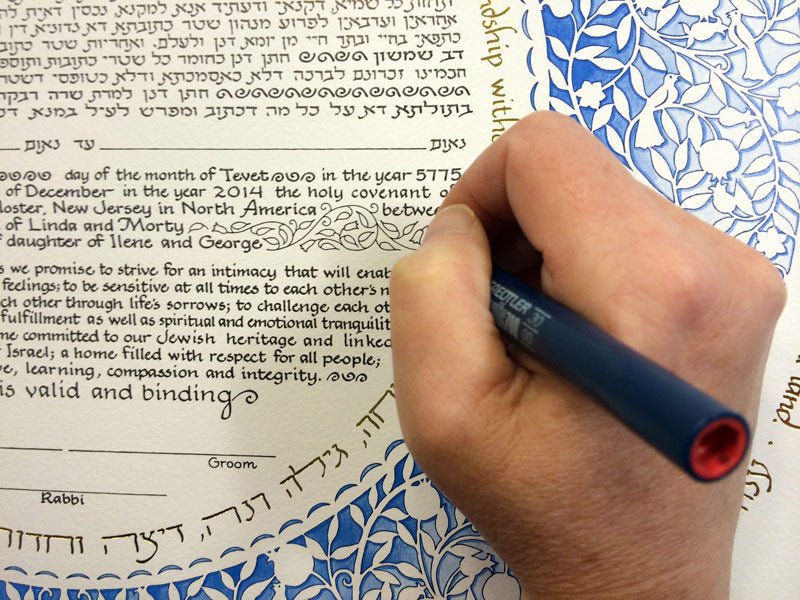 תחות כל שמיא, דקנאי ודעתיד אנא למקנא, נכסין דאית
אחראין וערבאין לפרוע מנהון שטר כתובתא דא נדוניא דין
כתפאי בחיי ובתר חיי מן יומא דנן ולעלם. ואחריות שטר
דב שמשון חתן דנן כחומר כל שטרי כתובות
חכמינו זכרונם לברכה דלא כאסמכתא ודלא כטופסי
חתן דנן למרת שרה רבקה
בתולתא דא על כל מה דכתוב ומפרש לעיל במנא
נאום עד נאום
day of the month of Tevet in the year 5775
of December in the year 2014 the holy covenant of
New Jersey in North America
of Linda and Morty
daughter of Ilene and George
we promise to strive for an intimacy that will
feelings; to be sensitive at all times to each other's
other through life's sorrows; to challenge each
fulfillment as well as spiritual and emotional
committed to our Jewish heritage and linked
Israel; a home filled with respect for all people;
learning, compassion and integrity.
is valid and binding
Groom
Rabbi
גילה רנה, דיצה
STAEDTLER
land.